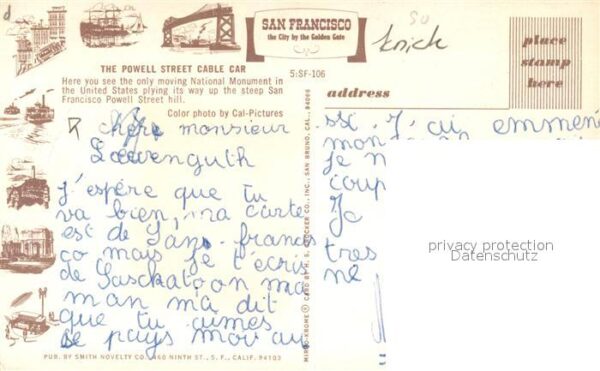 SAN FRANCISCO
the City by the Golden Gate
THE POWELL STREET CABLE CAR
5:SF-106
Here you see the only moving National Monument in
the United States plying its way up the steep San
Francisco Powell Street hill.
Color photo by Cal-Pictures
place
stamp
here
address
chère monsieur
Loewenguth
J'espère que tu
va bien, ma carte
est de Sans-francis
co mais je t'écris
de Saskatoon ma
man m'a dit
que tu aimes
se pays moi au
ssi. J'ai emmené
mon
je
coup
Je
tres
ne
privacy protection
Datenschutz
MIRRO-KROME® CARD BY H. S. CROCKER CO., INC., SAN BRUNO, CAL., 94066
PUB. BY SMITH NOVELTY CO., 460 NINTH ST., S. F., CALIF. 94103